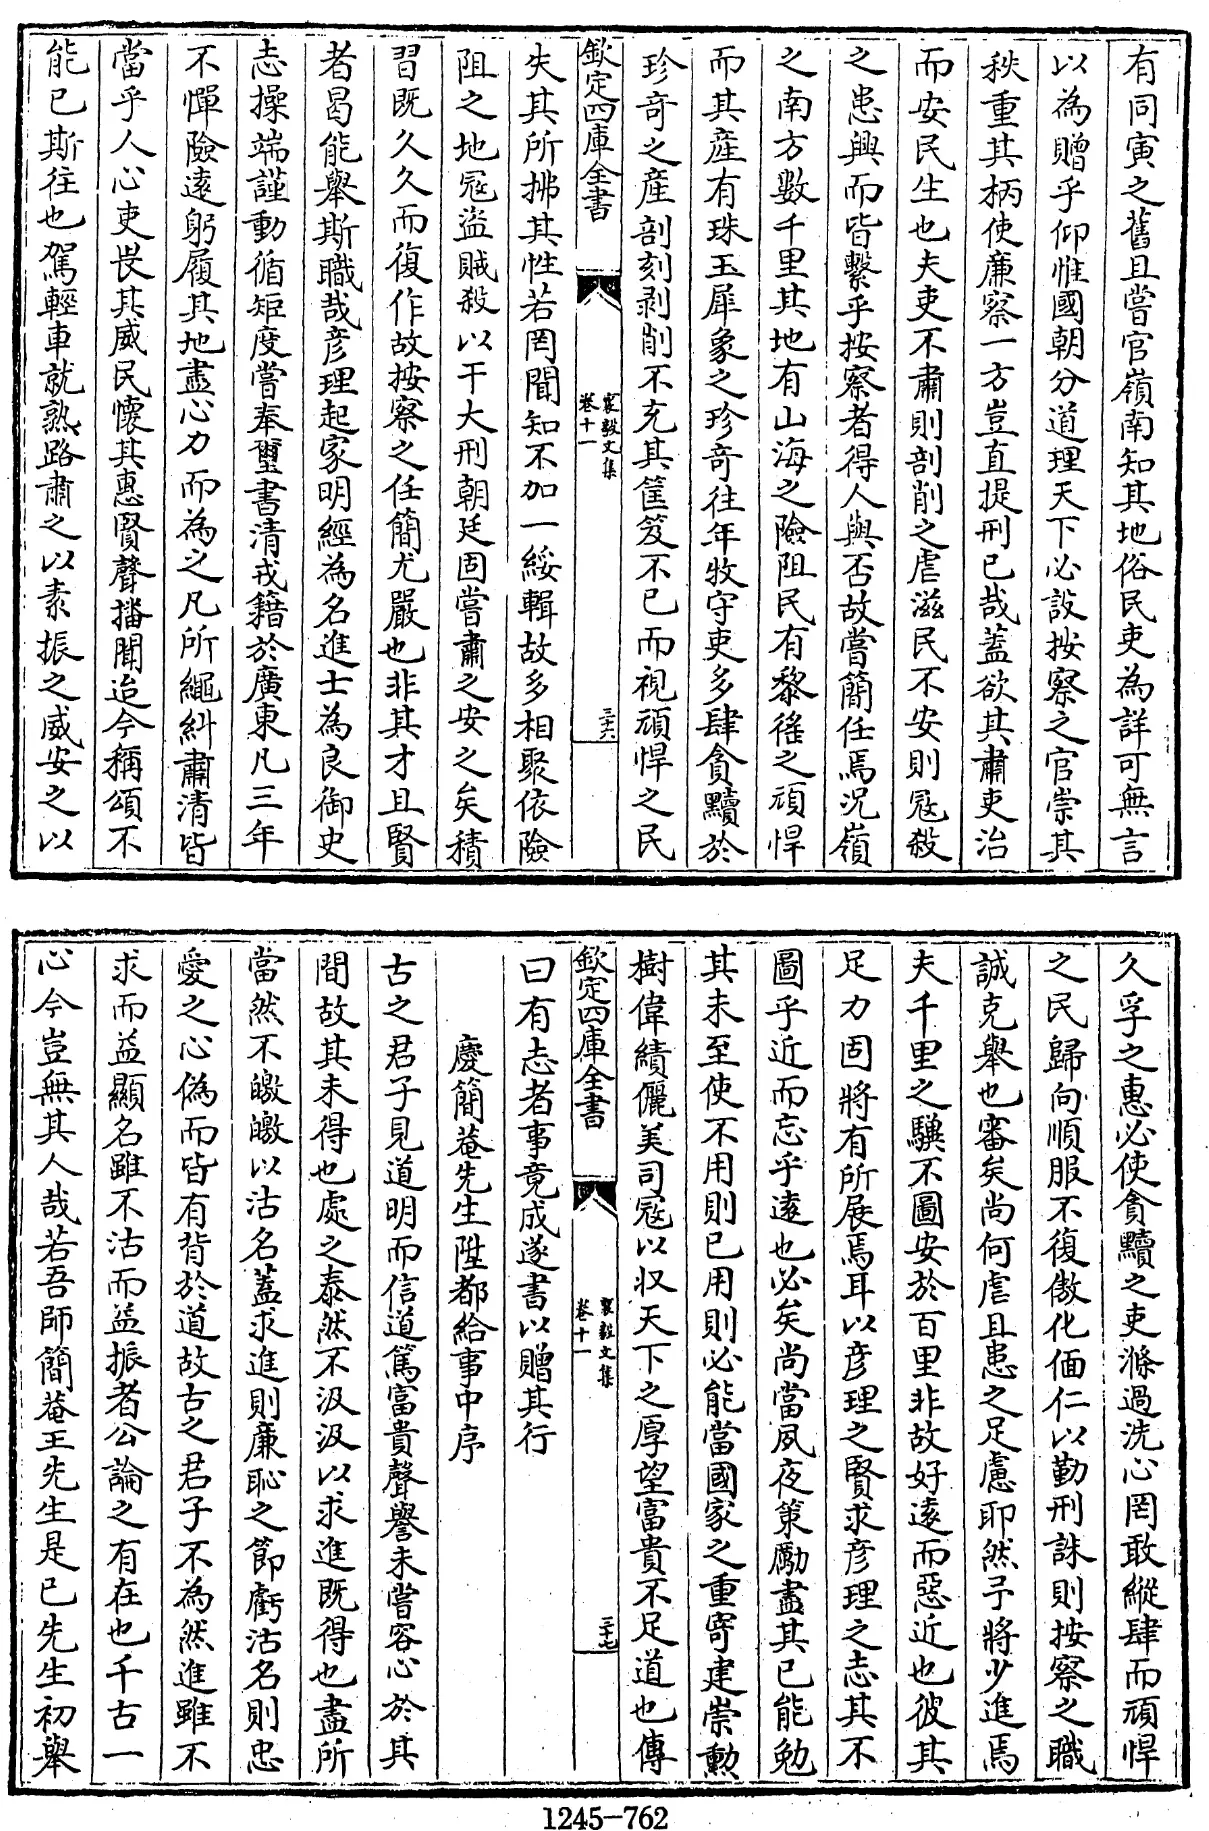 有同寅之舊且嘗官嶺南知其地俗民吏為詳可無言
以為贈乎仰惟國朝分道理天下必設按察之官崇其
秩重其柄使廉察一方豈直提刑已哉蓋欲其肅吏治
而安民生也夫吏不肅則剖削之虐滋民不安則冦殺
之患興而皆繫乎按察者得人與否故嘗簡任焉况嶺
之南方數千里其地有山海之險阻民有黎徭之頑悍
而其產有珠玉犀象之珍奇往年牧守吏多肆貪黷於
珍奇之産剖刻剥削不充其筐篚不已而視頑悍之民
欽定四庫全書
襄毅文集
卷十一
三十六
失其所拂其性若罔聞知不加一綏輯故多相聚依險
阻之地冦盜賊殺以干大刑朝廷固嘗肅之安之矣積
習既久久而復作故按察之任簡尤嚴也非其才且賢
者曷能舉斯職哉彦理起家明經為名進士為良御史
志操端謹動循矩度嘗奉璽書清戎籍於廣東凡三年
不憚險逺躬履其地盡心力而為之凡所繩糾肅清皆
當乎人心吏畏其威民懷其惠賢聲播聞迨今稱頌不
能已斯往也駕輕車就熟路肅之以素振之威安之以
久孚之惠必使貪黷之吏滌過洗心罔敢縱肆而頑悍
之民歸向順服不復傲化偭仁以勤刑誅則按察之職
誠克舉也審矣尚何虐且患之足慮耶然予將少進焉
夫千里之驥不圖安於百里非故好逺而惡近也彼其
足力固將有所展焉耳以彦理之賢求彦理之志其不
圖乎近而忘乎逺也必矣尚當夙夜策勵盡其已能勉
其未至使不用則已用則必能當國家之重寄建崇勲
樹偉績儷美司冦以収天下之厚望富貴不足道也傳
欽定四庫全書
襄毅文集
卷十一
三十七
曰有志者事竟成遂書以贈其行
慶簡菴先生陞都給事中序
古之君子見道明而信道篤富貴聲譽未嘗容心於其
間故其未得也處之泰然不汲汲以求進既得也盡所
當然不皦皦以沽名蓋求進則廉恥之節虧沽名則忠
愛之心偽而皆有背於道故古之君子不為然進雖不
求而益顯名雖不沽而益振者公論之有在也千古一
心今豈無其人哉若吾師簡菴王先生是已先生初舉
1245-762